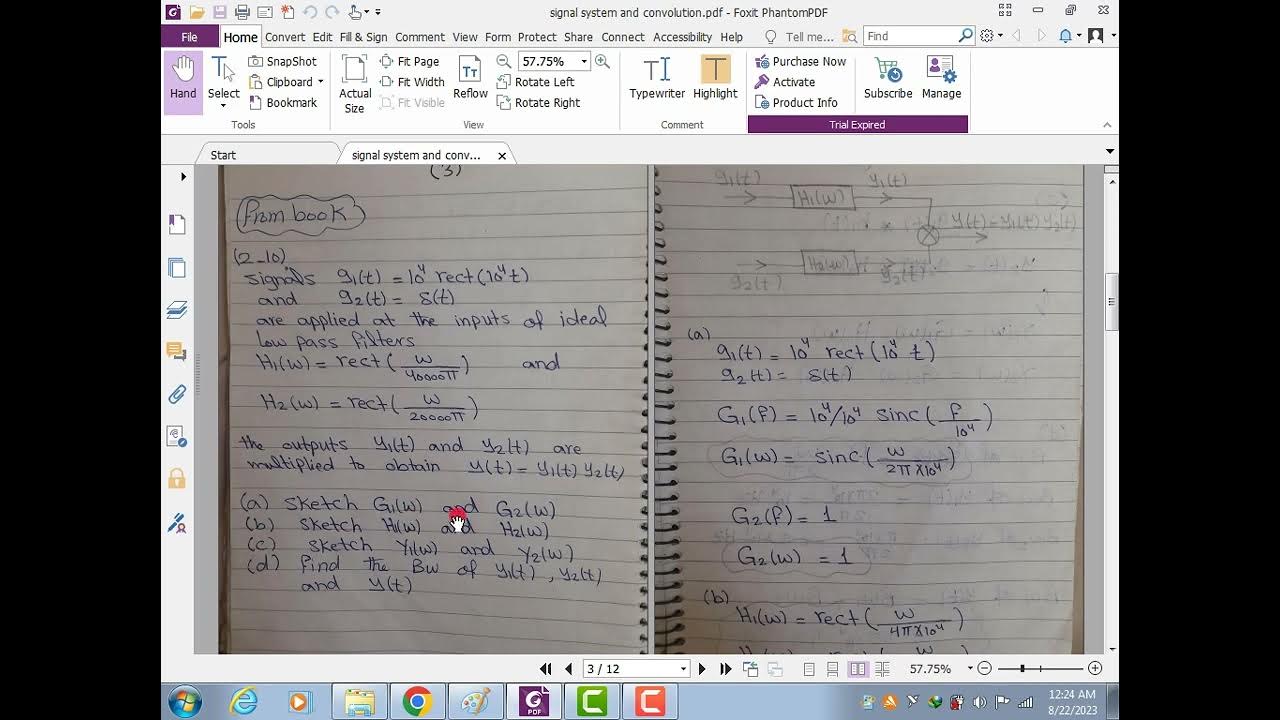 signal system and convolution.pdf - Foxit PhantomPDF
File Home Convert Edit Fill & Sign Comment View Form Protect Share Connect Accessibility Help Tell me... Find
Hand
Select
SnapShot
Clipboard
Bookmark
Tools
Actual Size
Fit Page
Fit Width
Fit Visible
Reflow
57.75%
Rotate Left
Rotate Right
View
Typewriter
Highlight
Comment
Purchase Now
Activate
Product Info
Subscribe
Manage
Trial Expired
Start
signal system and conv...
(3)
From book
(2-10)
signals g1(t) = 10⁴ rect(10⁴t)
and g2(t) = δ(t)
are applied at the inputs of ideal
low pass filters
H1(w) = rect(w/40000π) and
H2(w) = rect(w/20000π)
the outputs y1(t) and y2(t) are
multiplied to obtain y(t) = y1(t) y2(t)
(a) sketch G1(w) and G2(w)
(b) sketch H1(w) and H2(w)
(c) sketch Y1(w) and Y2(w)
(d) find the BW of y1(t), y2(t)
and y(t)
g1(t) H1(w) y1(t)
y(t) = y1(t) y2(t)
g2(t) H2(w) y2(t)
(a)
g1(t) = 10⁴ rect(10⁴ t)
g2(t) = δ(t)
G1(f) = 10⁴/10⁴ sinc(f/10⁴)
G1(w) = sinc(w/2π×10⁴)
G2(f) = 1
G2(w) = 1
(b)
H1(w) = rect(w/4π×10⁴)
3 / 12
57.75%
PDF
12:24 AM
8/22/2023